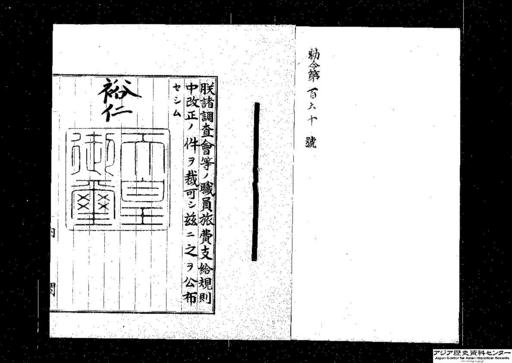 勅令第百六十號
朕諸調査會等ノ職員旅費支給規則
中改正ノ件ヲ裁可シ茲ニ之ヲ公布
セシム
裕仁
天皇
御璽
内閣
アジア歴史資料センター
Japan Center for Asian Historical Records